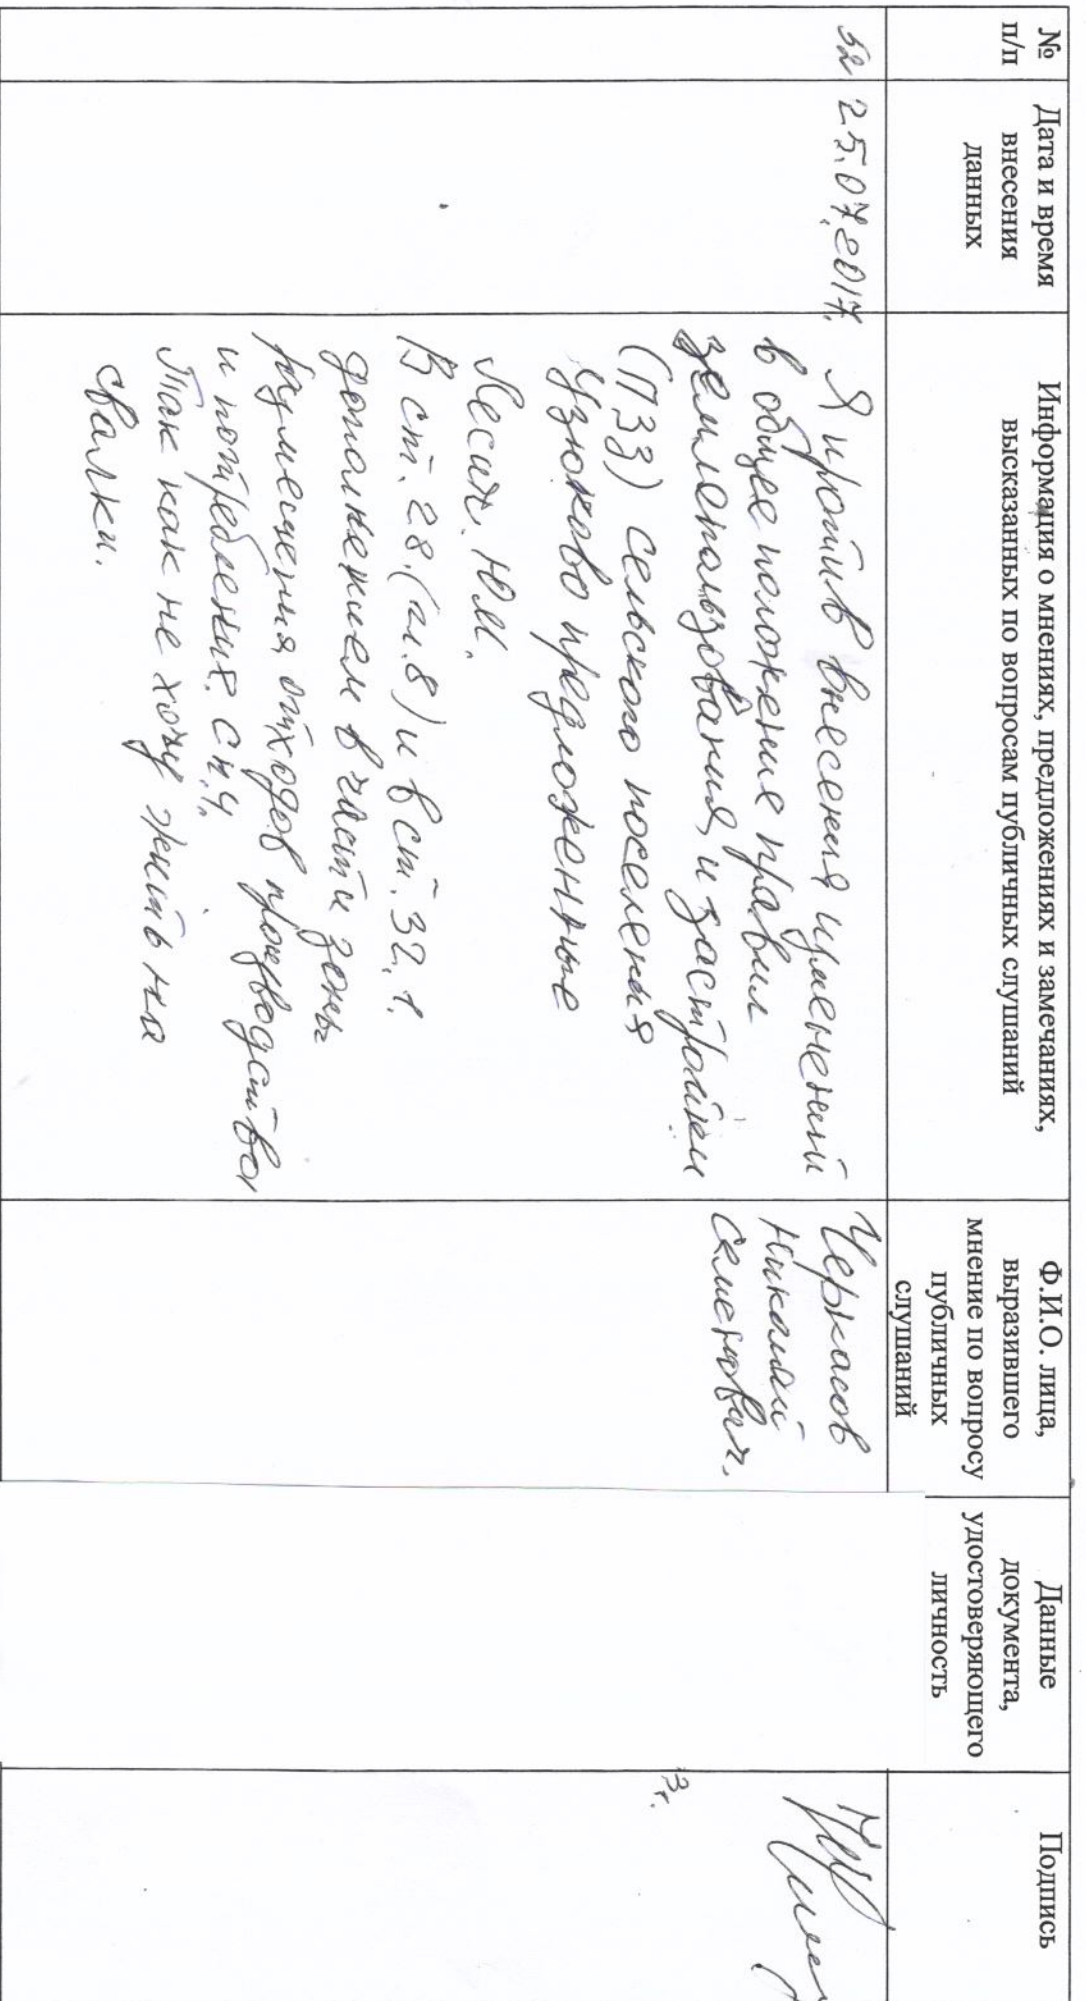 №
п/п
Дата и время
внесения
данных
Информация о мнениях, предложениях и замечаниях,
высказанных по вопросам публичных слушаний
Ф.И.О. лица,
выразившего
мнение по вопросу
публичных
слушаний
Данные
документа,
удостоверяющего
личность
Подпись
52
25.07.2017.
Я против внесения изменений
в общее положение правил
землепользования и застройки
(ПЗЗ) сельского поселения
Узюково предложенные
Лесат. Ю.М.
В ст. 28.(гл.8) и в ст. 32.1.
дополнением в части зоны
размещения отходов производства
и потребления. сп.4.
Так как не хочу жить на
свалки.
Черкасов
Николай
Семенович.